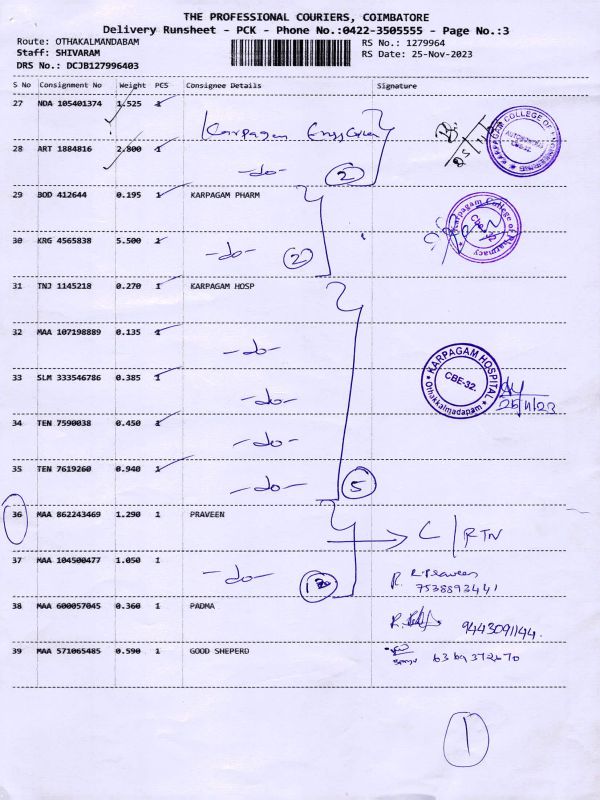 THE PROFESSIONAL COURIERS, COIMBATORE
Delivery Runsheet - PCK - Phone No.:0422-3505555 - Page No.:3
Route: OTHAKALMANDABAM
RS No.: 1279964
Staff: SHIVARAM
RS Date: 25-Nov-2023
DRS No.: DCJB127996403
S No Consignment No Weight PCS Consignee Details Signature
27 NDA 105401374 1.525 1
Karpagam
KARPAGAM COLLEGE OF ENGINEERING
AUTONOMOUS
CBE-32.
28 ART 1884816 2.800 1 -do- 2
29 BOD 412644 0.195 1 KARPAGAM PHARM
Karpagam College of Pharmacy
CBE-32
30 KRG 4565838 5.500 1 -do- 2
31 TNJ 1145218 0.270 1 KARPAGAM HOSP
32 MAA 107198889 0.135 1 -do-
KARPAGAM HOSPITAL
CBE-32.
Othakkalmadapam
33 SLM 333546786 0.385 1 -do-
34 TEN 7590038 0.450 1 -do-
35 TEN 7619260 0.940 1 -do- 5
36 MAA 862243469 1.290 1 PRAVEEN C/RTN
37 MAA 104500477 1.050 1 -do-
R. R.Praveen
7538893441
38 MAA 600057045 0.360 1 PADMA
9443091144.
39 MAA 571065485 0.590 1 GOOD SHEPERD
6369372670
1